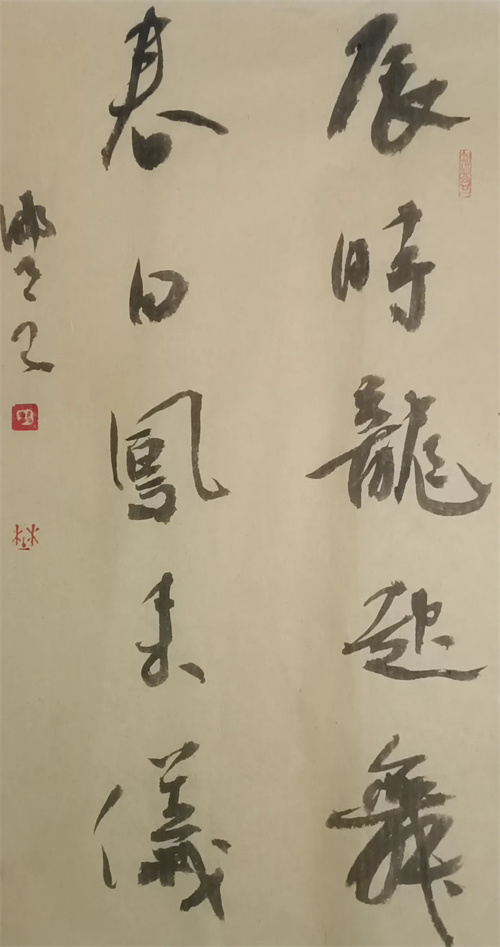 辰時龍起舞
春日鳳来儀